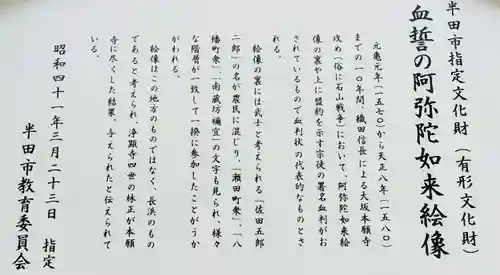 半田市指定文化財(有形文化財)
血誓の阿弥陀如来絵像
元亀元年(一五七〇)から天正八年(一五八〇)
までの一〇年間、織田信長による大坂本願寺
攻め(俗に石山戦争)において、阿弥陀如来絵
像の裏や上に盟約を示す宗徒の署名血判がお
されているもので血判状の代表的なものとさ
れる。
絵像の裏には武士と考えられる「佐田五郎
二郎」の名が農民に混じり、「瀬田町衆」、「八
幡町衆」、「南蔵坊禰宜」の文字も見られ、様々
な階層が一致して一揆に参加したことがうか
がわれる。
絵像はこの地方のものではなく、長浜のもの
であると考えられ、浄顕寺四世の林正が本願
寺に尽くした結果、与えられたと伝えられて
いる。
昭和四十一年三月二十三日 指定
半田市教育委員会